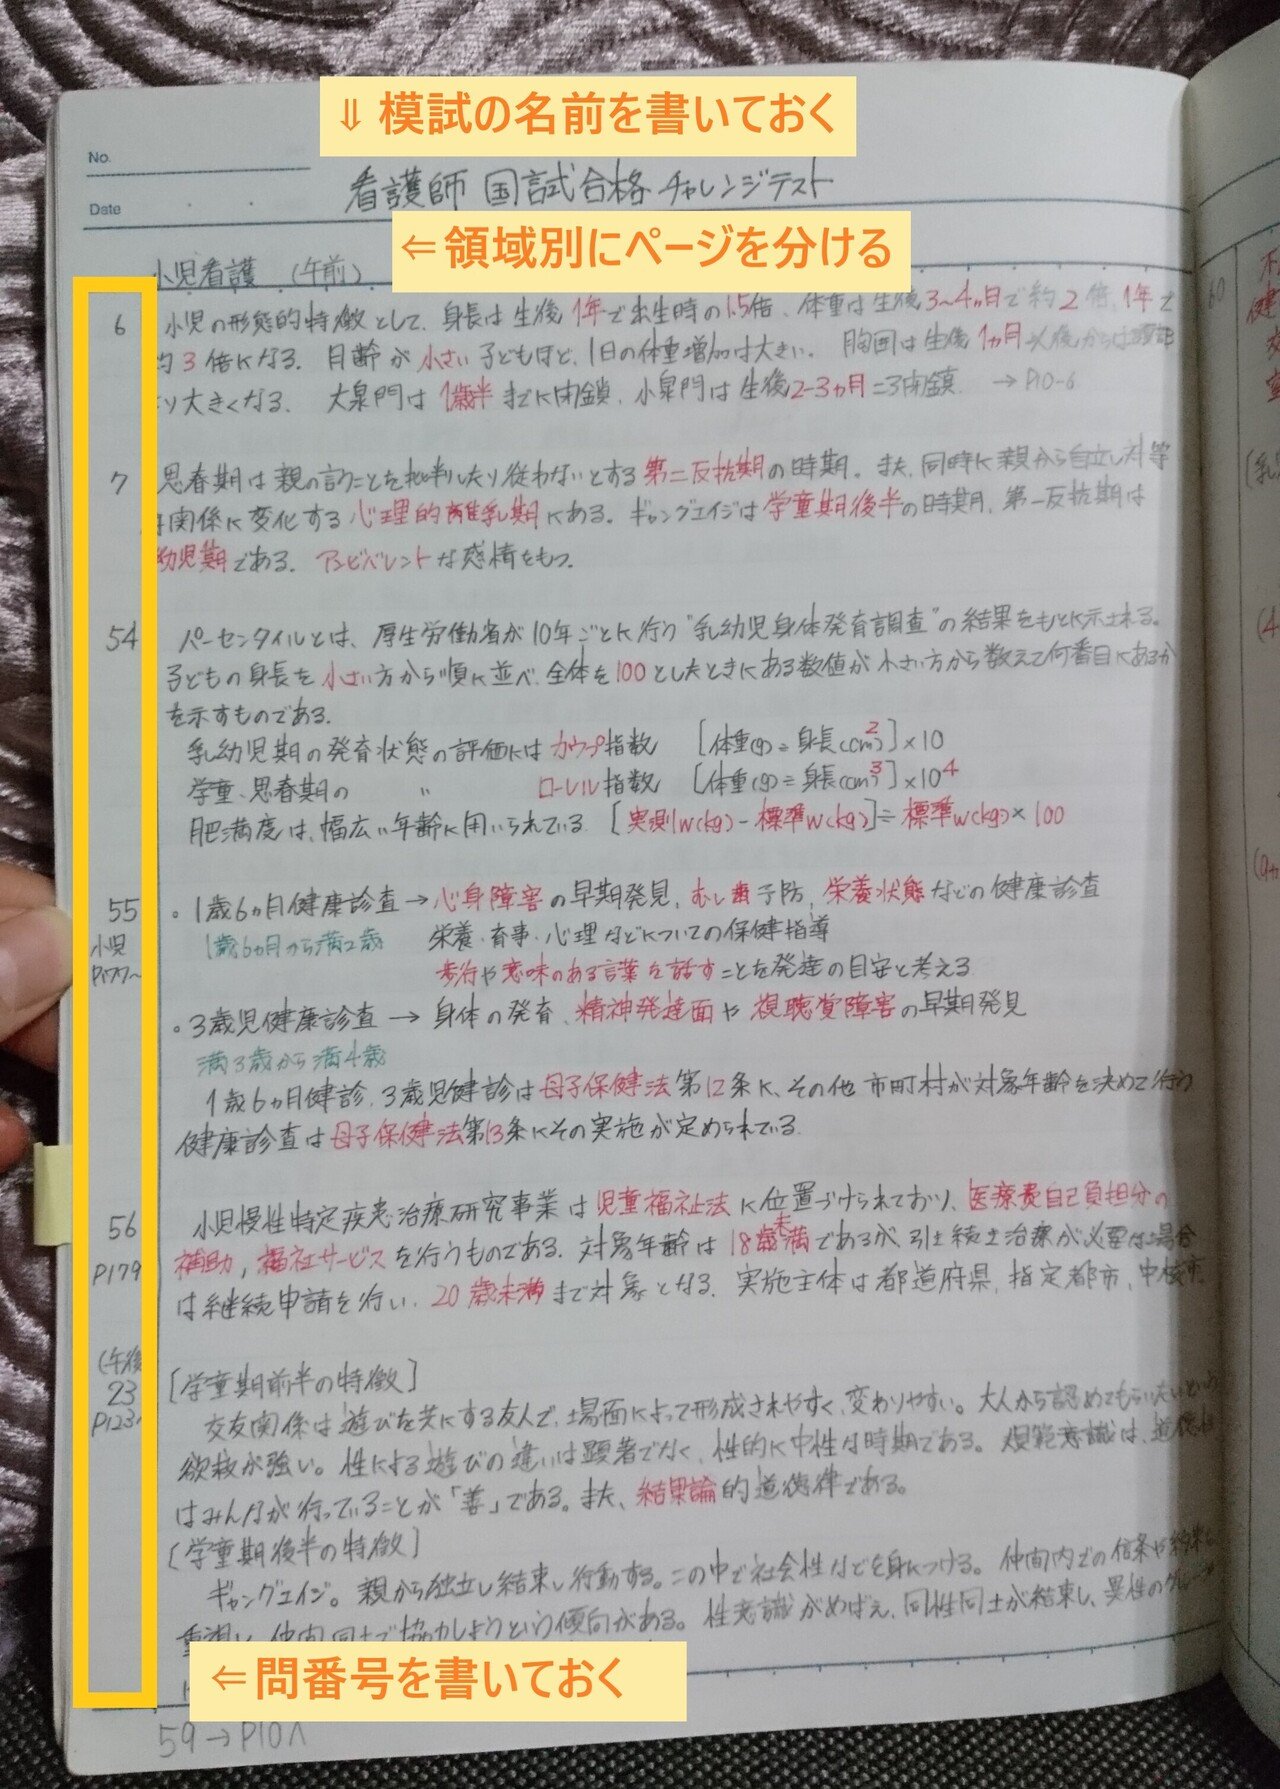 ⇓ 模試の名前を書いておく
No.
Date
看護師 国試合格チャレンジテスト
⇐領域別にページを分ける
小児看護 (午前)
6 小児の形態的特徴として、身長は生後1年で出生時の1.5倍、体重は生後3~4ヵ月で約2倍、1年で
約3倍になる。月齢が小さい子どもほど、1日の体重増加は大きい。胸囲は生後1ヵ月以後からは頭囲
より大きくなる。大泉門は1歳半までに閉鎖、小泉門は生後2-3ヵ月に閉鎖。→P10-6
7 思春期は親の言うことを批判したり従わないとする第二反抗期の時期。また、同時に親から自立し対等
な関係に変化する心理的離乳期にある。ギャングエイジは学童期後半の時期、第一反抗期は
幼児期である。アンビバレントな感情をもつ。
54 パーセンタイルとは、厚生労働省が10年ごとに行う"乳幼児身体発育調査"の結果をもとに示される。
子どもの身長を小さい方から順に並べ、全体を100としたときにある数値が小さい方から数えて何番目にあるか
を示すものである。
乳幼児期の発育状態の評価にはカウプ指数 [体重(g)÷身長(cm)²]×10
学童、思春期の 〃 ローレル指数 [体重(g)÷身長(cm)³]×10⁴
肥満度は、幅広い年齢に用いられている。[実測W(kg)-標準W(kg)]÷標準W(kg)×100
55 。1歳6ヵ月健康診査→心身障害の早期発見、むし歯予防、栄養状態などの健康診査
小児 1歳6ヵ月から満2歳 栄養・育事・心理などについての保健指導
P177~ 歩行や意味のある言葉を話すことを発達の目安と考える
。3歳児健康診査→身体の発育、精神発達面や視聴覚障害の早期発見
満3歳から満4歳
1歳6ヵ月健診、3歳児健診は母子保健法第12条に、その他市町村が対象年齢を決めて行う
健康診査は母子保健法第13条にその実施が定められている。
56 小児慢性特定疾患治療研究事業は児童福祉法に位置づけられており、医療費自己負担分の
P179 補助、福祉サービスを行うものである。対象年齢は18歳未満であるが、引き続き治療が必要な場合
は継続申請を行い、20歳未満まで対象となる。実施主体は都道府県、指定都市、中核市
(午後
23 [学童期前半の特徴]
P123 交友関係は遊びを共にする友人で、場面によって形成されやすく、変わりやすい。大人から認めてもらいたいという
欲求が強い。性による遊びの違いは顕著でなく、性的に中性な時期である。規範意識は、道徳
はみんなが行っていることが「善」である。また、結果論的道徳律である。
[学童期後半の特徴]
ギャングエイジ。親から独立し結束し行動する。この中で社会性などを身につける。仲間内での信条や約束を
重視し、仲間同士で協力しようという傾向がある。性意識がめばえ、同性同士が結束し、異性のグループ
⇐問番号を書いておく
59→P10